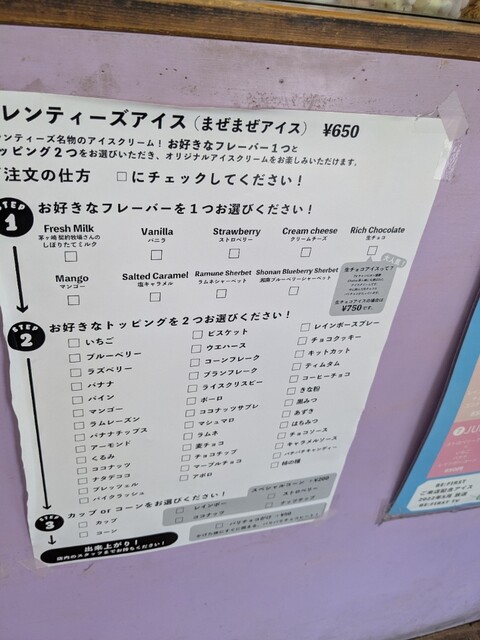 レンティーズアイス（まぜまぜアイス） ¥650
ンティーズ名物のアイスクリーム！ お好きなフレーバー１つと
ッピング２つをお選びいただき、オリジナルアイスクリームをお楽しみいただけます。
注文の仕方 □にチェックしてください！
STEP 1 お好きなフレーバーを１つお選びください！
Fresh Milk
茅ヶ崎 契約牧場さんの
しぼりたてミルク
Vanilla
バニラ
Strawberry
ストロベリー
Cream cheese
クリームチーズ
Rich Chocolate
生チョコ
大人気！
生チョコアイスって？
生チョコアイスの場合は
¥750です。
Mango
マンゴー
Salted Caramel
塩キャラメル
Ramune Sherbet
ラムネシャーベット
Shonan Blueberry Sherbet
湘南ブルーベリーシャーベット
STEP 2 お好きなトッピングを２つお選びください！
いちご
ブルーベリー
ラズベリー
バナナ
パイン
マンゴー
バナナチップス
アーモンド
くるみ
ココナッツ
ナタデココ
プレッツェル
パイクラッシュ
ビスケット
ウエハース
コーンフレーク
ブランフレーク
ライスクリスピー
ボーロ
ココナッツサブレ
マシュマロ
ラムネ
麦チョコ
チョコチップ
マーブルチョコ
アポロ
レインボースプレー
チョコクッキー
キットカット
ティムタム
コーヒーチョコ
きな粉
黒みつ
あずき
はちみつ
チョコソース
キャラメルソース
パチパチキャンディー
柿の種
STEP 3 カップ or コーンをお選びください！
カップ
コーン
スペシャルコーン +¥200
レインボー
ストロベリー
ココナッツ
ナッツナッツ
パリチョコがけ
出来上がり！
店内のスタッフまでお持ちください！